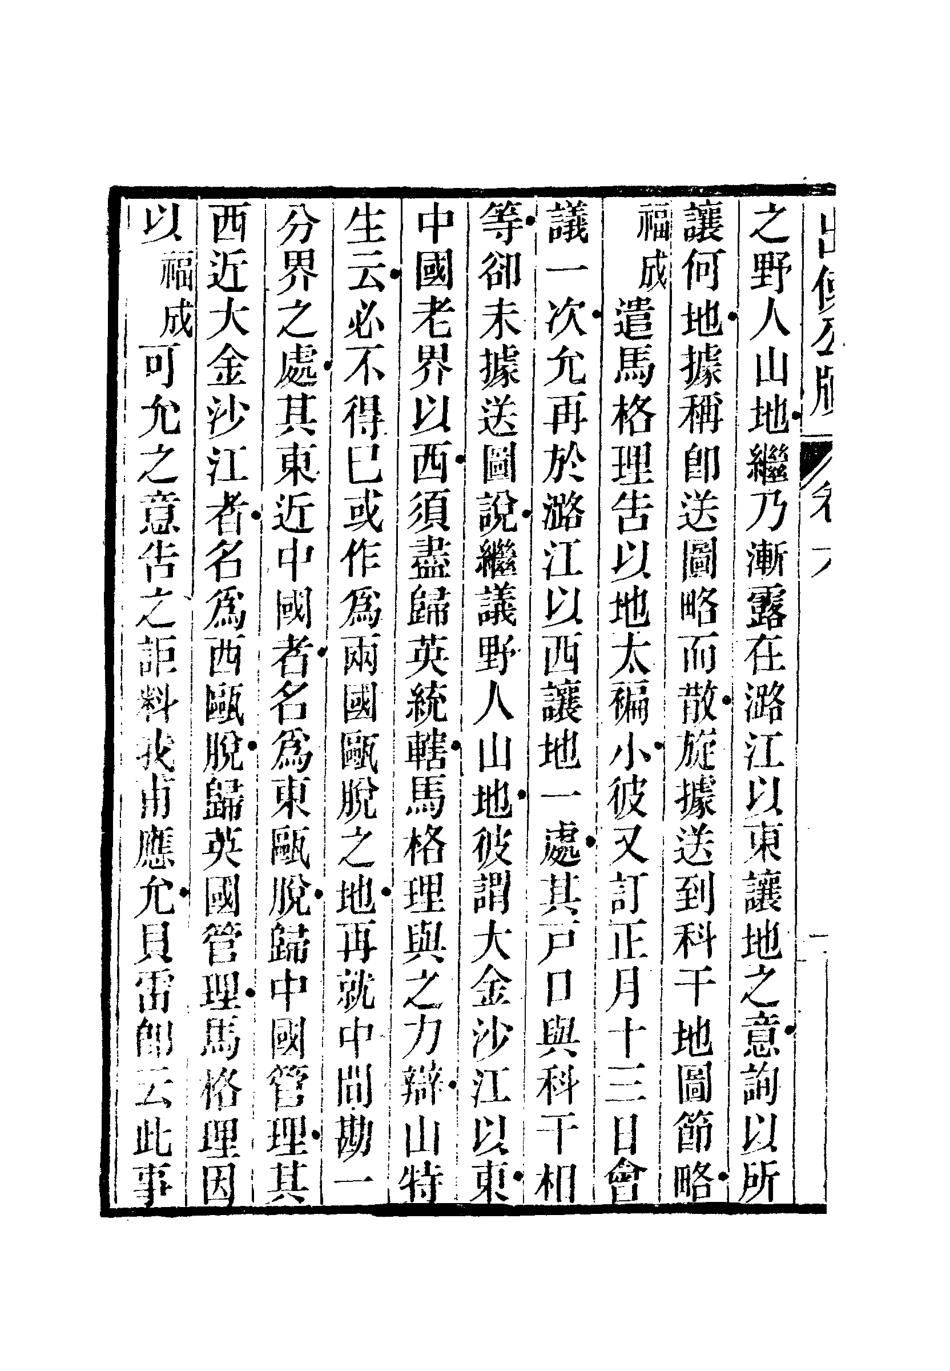 出使公牘 卷六
之野人山地繼乃漸露在潞江以東讓地之意詢以所
讓何地據稱卽送圖略而散旋據送到科干地圖節略
福成遣馬格理告以地太褊小彼又訂正月十三日會
議一次允再於潞江以西讓地一處其戸口與科干相
等卻未據送圖說繼議野人山地彼謂大金沙江以東
中國老界以西須盡歸英統轄馬格理與之力辯山特
生云必不得已或作爲兩國甌脫之地再就中間勘一
分界之處其東近中國者名爲東甌脫歸中國管理其
西近大金沙江者名爲西甌脫歸英國管理馬格理因
以福成可允之意告之詎料我甫應允貝雷卽云此事